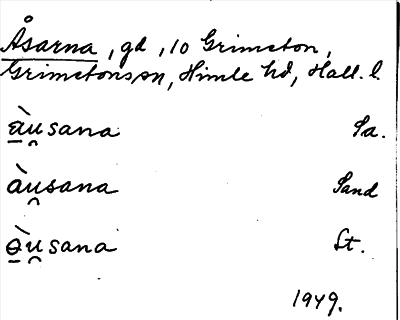 Åsarna, gd, 10 Grimeton,
Grimetons sn, Himle hd, Hall. l.
à̱u̯sana Sa.
àu̯sana Sand
ə̱̀u̯sana St.
1949.